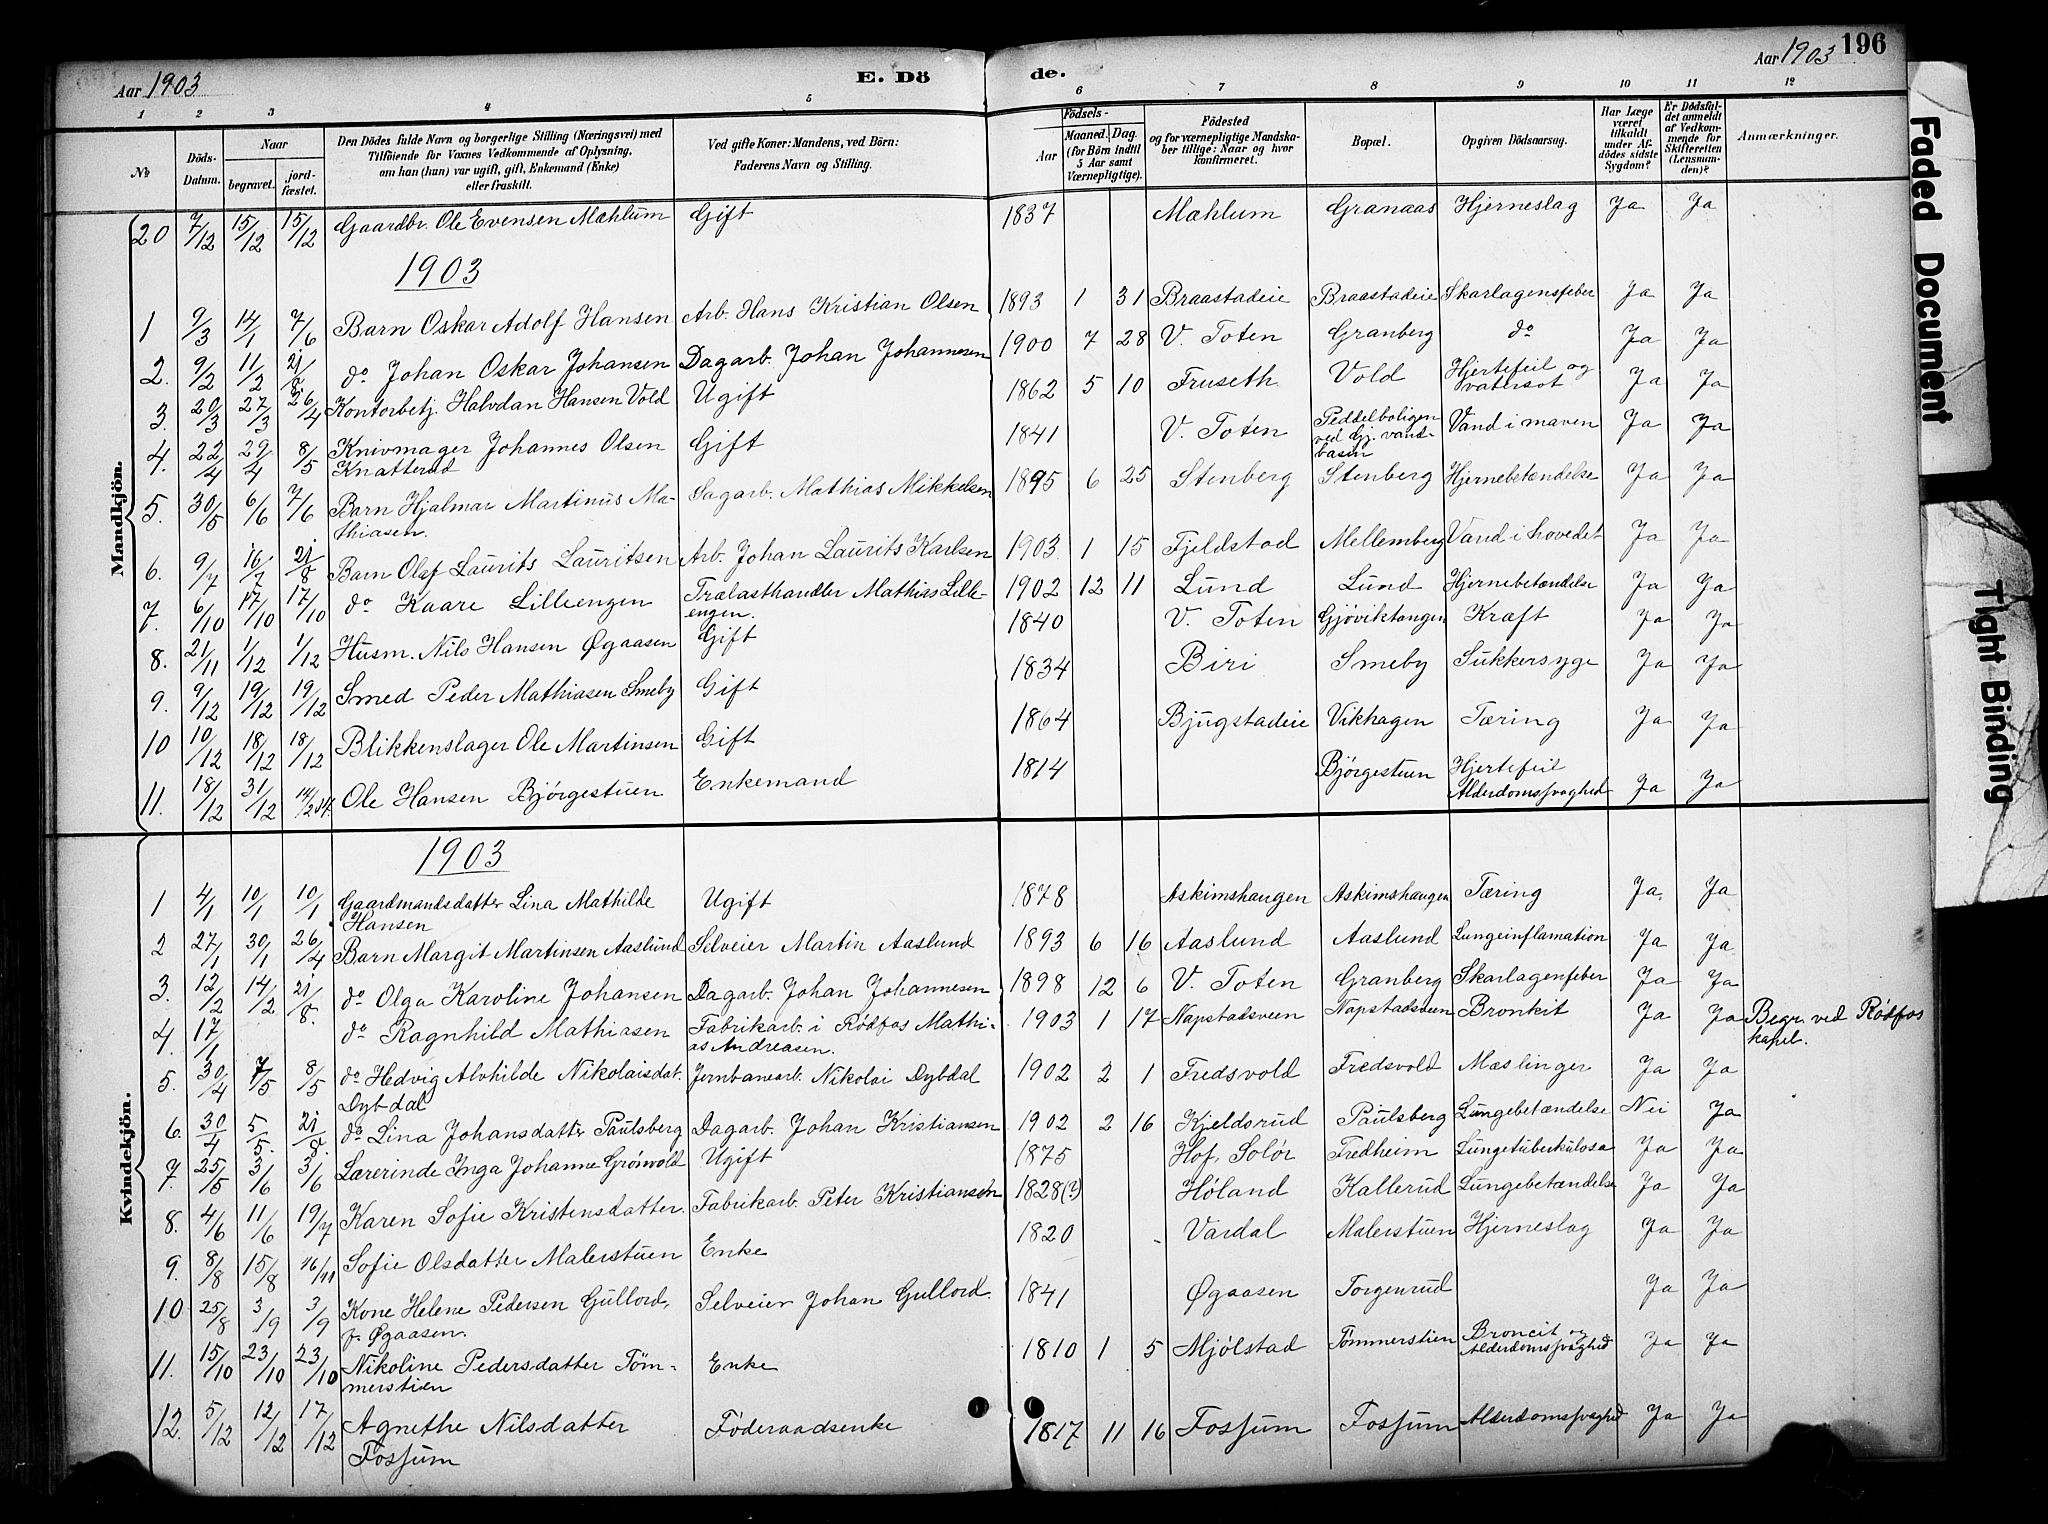 Aar 1903
E. Dö
de.
Aar 1903
196
1 2 3 4 5 6 7 8 9 10 11 12
No
Döds-Datum.
Naar
begravet.
jord-fæstet.
Den Dödes fulde Navn og borgerlige Stilling (Næringsvei) med
Tilföiende for Voxnes Vedkommende af Oplysning,
om han (hun) var ugift, gift, Enkemand (Enke)
eller fraskilt.
Ved gifte Koner: Mandens, ved Börn:
Faderens Navn og Stilling.
Födsels-
Aar
Maaned. Dag.
(for Börn indtil
5 Aar samt
Værnepligtige).
Födested
og for værnepligtige Mandska-
ber tillige: Naar og hvor
konfirmeret.
Bopæl.
Opgiven Dödsaarsag.
Har Læge
været
tilkaldt
under Af-
dödes sidste
Sygdom?
Er Dödsfal-
det anmeldt
af Vedkom-
mende for
Skifteretten
(Lensman-
den)?
Anmærkninger.
Mandkjön.
20 7/12 15/12 15/12 Gaardbr. Ole Evensen Mæhlum Gift 1837 Mæhlum Granaas Hjerneslag Ja Ja
1903
1 9/3 14/1 7/6 Barn Oskar Adolf Hansen Arb. Hans Kristian Olsen 1893 1 31 Braastadeie Braastadeie Skarlagensfeber Ja Ja
2. 9/2 11/2 21/8 do Johan Oskar Johansen Dagarb. Johan Johannesen 1900 7 28 V. Toten Granberg do Ja Ja
3. 20/3 27/3 26/4 Kontorbetj. Halvdan Hansen Vold Ugift 1862 5 10 Fruseth Vold Hjertefeil og vatersot Ja Ja
4. 22/4 29/4 8/5 Knivmager Johannes Olsen Knatterud Gift 1841 V. Toten Peddelboligen ved Gj. vand-basin Vand i maven Ja Ja
5. 30/5 6/6 7/6 Barn Hjalmar Martinus Ma-thiasen. Sagarb. Mathias Mikkelsen 1895 6 25 Stenberg Stenberg Hjernebetændelse Ja Ja
6. 9/7 16/7 21/8 Barn Olaf Laurits Lauritsen Arb. Johan Laurits Karlsen 1903 1 15 Fjeldstad Mellemberg Vand i hovedet Ja Ja
7. 6/10 17/10 17/10 do Kaare Lilleengen Trælasthandler Mathias Lille-engen. 1902 12 11 Lund Lund Hjernebetændelse Ja Ja
8. 21/11 1/12 1/12 Husm. Nils Hansen Øgaasen Gift 1840 V. Toten Gjøviktangen Kræft Ja Ja
9. 9/12 19/12 19/12 Smed Peder Mathiasen Smeby Gift 1834 Biri Smeby Sukkersyge Ja Ja
10 10/12 18/12 18/12 Blikkenslager Ole Martinsen Gift 1864 Bjugstadeie Vikhagen Tæring Ja Ja
11. 18/12 31/12 14/2 04. Ole Hansen Bjørgestuen Enkemand 1814 Bjørgestuen Hjertefeil Alderdomssvaghed Ja Ja
Kvindekjön.
1903
1 4/1 10/1 10/1 Gaardmandsdatter Lina Mathilde Hansen Ugift 1878 Askimshaugen Askimshaugen Tæring Ja. Ja
2 27/1 30/1 26/4 Barn Margit Martinsen Aaslund Selveier Martin Aaslund 1893 6 16 Aaslund Aaslund Lungeinflamation Ja Ja
3. 12/2 14/2 21/8. do Olga Karoline Johansen Dagarb. Johan Johannesen 1898 12 6 V. Toten Granberg Skarlagenfeber Ja Ja
4. 17/1 do Ragnhild Mathiasen Fabrikarb. i Rødfos Mathi-as Andreasen. 1903 1 17 Napstadsveen Napstadsveen Bronkit Ja Ja Begr. ved Rødfos kapel.
5. 30/4 7/5 8/5 do Hedvig Alvhilde Nikolaisdat. Dybdal Jernbanearb. Nikolai Dybdal 1902 2 1 Fredsvold Fredsvold Mæslinger Ja Ja
6. 30/4 5/5. 21/8. do Lina Johansdatter Paulsberg Dagarb. Johan Kristiansen 1902 2 16 Kjeldsrud Paulsberg Lungebetændelse Nei Ja
7. 25/5 3/6 3/6 Lærerinde Inga Johanne Grönvold Ugift 1875 Hof, Solør Fredheim Lungetuberkulosa Ja Ja
8. 4/6 11/6 19/7 Karen Sofie Kristensdatter. Fabrikarb. Peter Kristiansen 1828(?) Høland Kallerud Lungebetændelse Ja Ja
9. 8/8 15/8 16/11 Sofie Olsdatter Malerstuen Enke 1820 Vardal Malerstuen Hjerneslag Ja Ja
10 25/8 3/9 3/9 Kone Helene Pedersen Gullord, f. Øgaasen. Selveier Johan Gullord. 1841 Øgaasen Torgenrud Ja Ja
11. 15/10 23/10 23/10 Nikoline Pedersdatter Töm-merstien Enke 1810 1 5 Mjölstad Tömmerstien Broncit og Alderdomssvaghed Ja Ja
12. 5/12 12/12 17/12 Agnethe Nilsdatter Fossum Føderaadsenke 1817 11 16 Fossum Fossum Alderdomssvaghed Ja Ja
Faded Document
Tight Binding